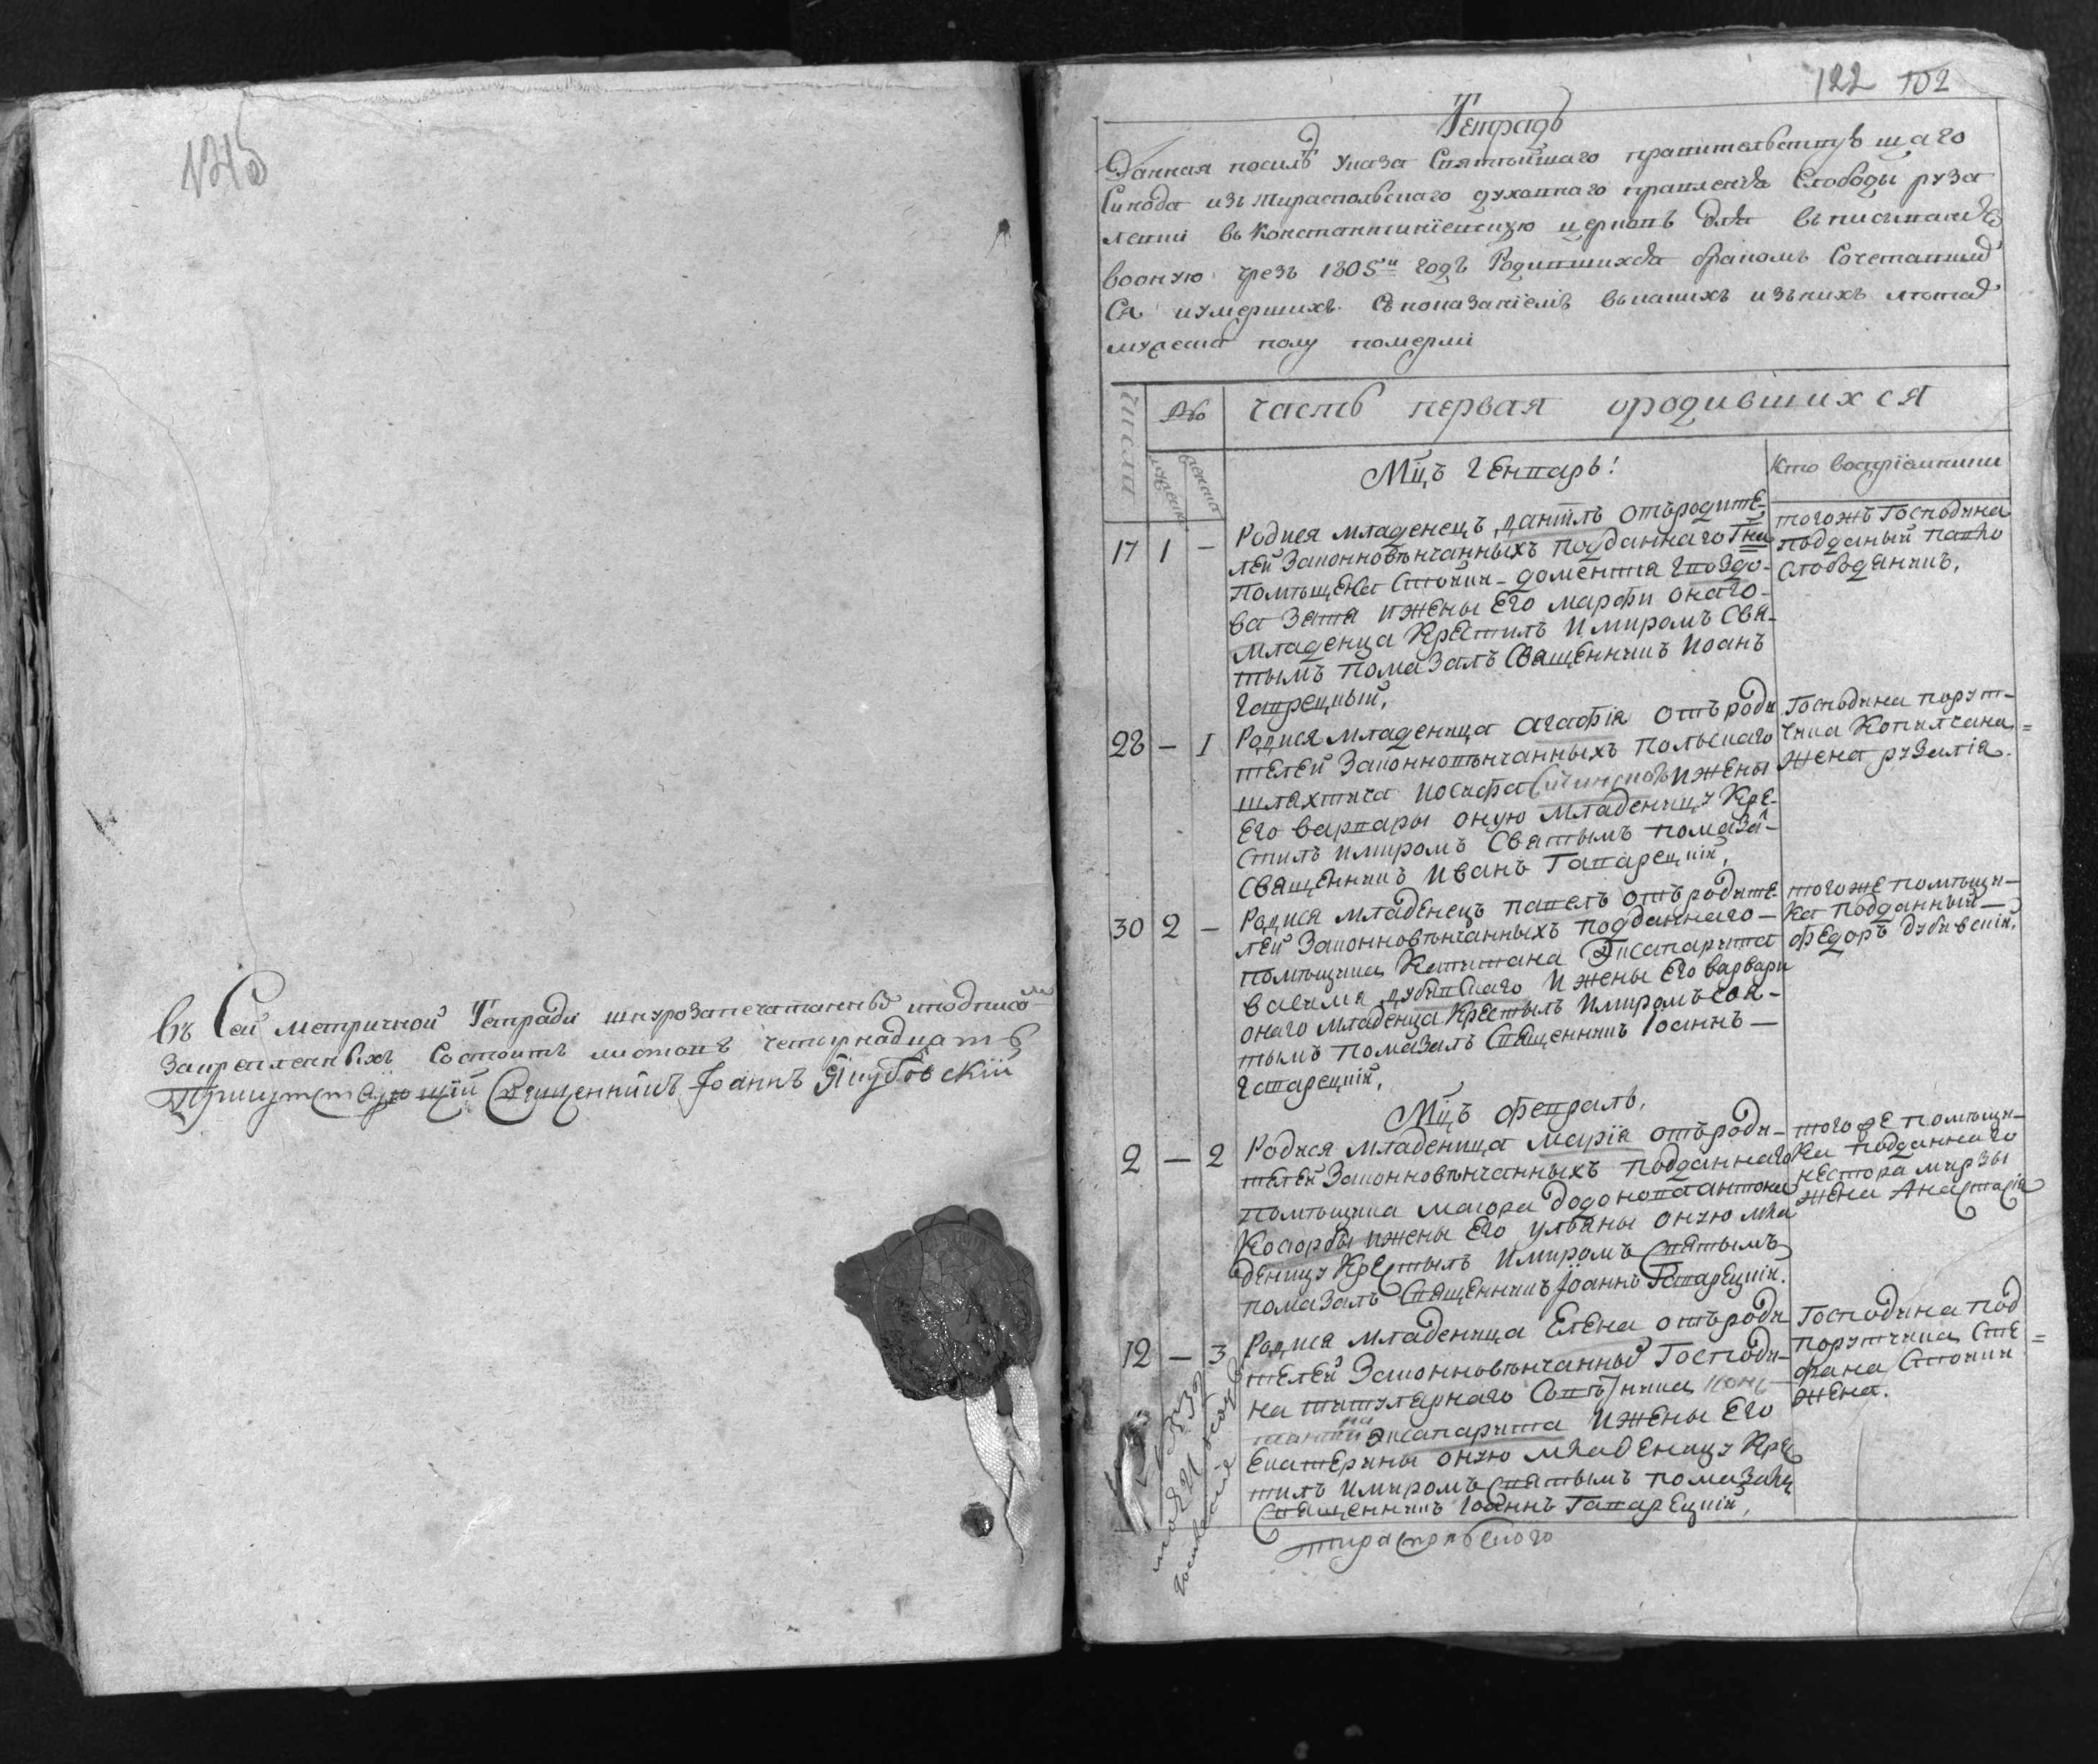 въ Сей метричной Тетради шнурозапечатанныхъ иподписомъ
закрепленныхъ Состоитъ листовъ четырнадцать
Присутствующій Священникъ Іоаннъ Якубовскій
122 102
Тетрадь
Данная посилѣ Указа Святѣйшаго правительствующаго
Синода изъ тираспольскаго духовнаго правленія Слободы руза
левки въ константиніевскую церковь для въписыванія
вооную чрезъ 1805й годъ Родившихся бракомъ Сочетавших
Ся иумершихъ Споказаніемъ
полу померли
Числа
часть первая ородившихся
Мцъ Генваръ!
Кто воспріемники
17 1 —
Родися младенецъ даніилъ отъродите-
лей Законновѣнчанныхъ подданнаго Гна
помѣщека Стойки доментія Гвоздо-
ва Зятя ижены Его марфи онаго-
младенца Крестилъ имиромъ Свя-
тымъ помазалъ Священникъ Иоанъ
Гапрецкый,
тогожъ Господина
подданый павло
Слободяникъ,
28 — 1
Родися младеница агафія отъроди
телей Законновѣнчанныхъ польскаго
шляхтича иосифа ижены
Его варвары оную младеницу Кре-
стилъ имиромъ Святымъ помаза-
Священникъ Иванъ Гапарецкій,
Господина порут-
чика Копилчана
жена рузалія.
30 2 —
Родися младенецъ павелъ отъродите
лей Законновѣнчанныхъ подданнаго —
помѣщика Капитана Эксапарита
василия дубивскаго и жены Его варвары
онаго младенца Крестылъ имиромъ Свя-
тымъ помазалъ Священникъ Іоаннъ —
Гапарецкій,
тогоже помѣщи-
ка подданный —
федоръ дубивскій,
Мцъ февралъ,
2 — 2
Родися младеница марія отъроди-
телей Законновѣнчанныхъ подданнаго
помѣщика маіора додонова антона
Коцюрбы ижены Его ульяны оную мла
деницу Крестылъ имиромъ Святымъ
помазалъ Священникъ Іоаннъ Гапарецкій.
тогоже помѣщи-
ка подданнаго
нестора мирзы
жена Анастасія
12 — 3
Родися младеница Елена отъроди
телей Законновѣнчанный Господи-
на титулярнаго Совѣтника Конс
тантина эксапарита ижены Его
Екатерины оную младеницу Кре
тилъ имиромъ Святымъ помазалъ
Священникъ Іоаннъ Гапарецкій,
Господина под
порутчика Сте
фана Стойки
жена.
тираспольского